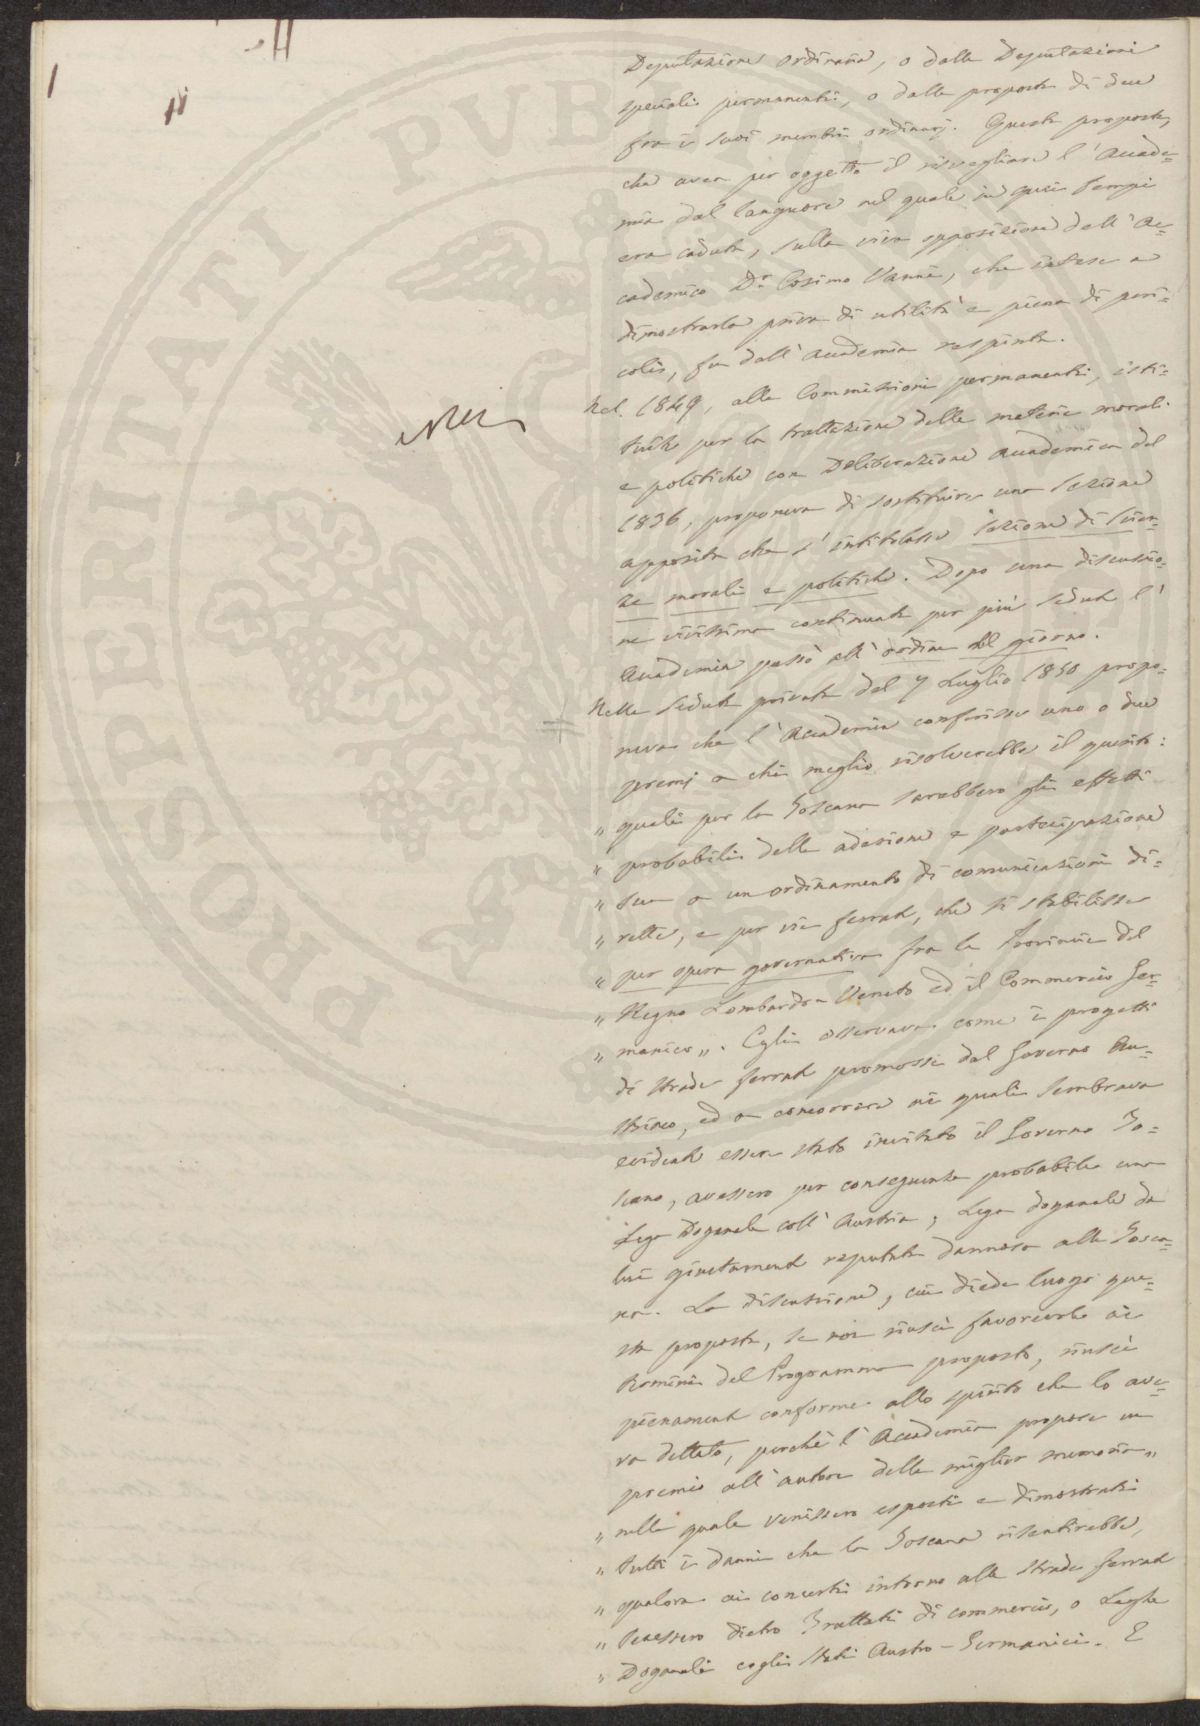 Deputazione ordinaria, o dalle Deputazioni
speciali permanenti, o dalle proposte di due
fra i suoi membri ordinarj. Questa proposta,
che avea per oggetto il risvegliare l'Accade=
mia dal languore nel quale in quei tempi
era caduta, sulla viva opposizione dell'Ac=
cademico Dr. Cosimo Vanni, che intese a
dimostrarla priva di utilità e piena di peri=
coli, fu dall'Accademia respinta.
Nel 1849, alle Commissioni permanenti, isti=
tuite per la trattazione delle materie morali
e politiche con Deliberazione Accademica del
1836, proponeva di sostituire una Sezione
apposita che s'intitolasse Sezione di Scien=
ze morali e politiche. Dopo una discussio=
ne vivissima continuata per più sedute l'
Accademia passò all'ordine del giorno.
Nella Seduta privata del 7 Luglio 1850 propo=
neva che l'Accademia conferisse uno o due
premj a chi meglio risolverebbe il quesito:
" quali per la Toscana sarebbero gli effetti
" probabili della adesione e partecipazione
" sua a un ordinamento di comunicazioni di=
" rette, e per vie ferrate, che si stabilisse
" per opera governativa fra le Provincie del
" Regno Lombardo-Veneto ed il Commercio Ger=
" manico". Egli osservava come i progetti
di strade ferrate promossi dal Governo Au=
striaco, ed a concorrere ai quali sembrava
evidente essere stato invitato il Governo To=
scano, avessero per conseguenza probabile una
Lega Doganale coll'Austria, Lega doganale da
lui giustamente reputata dannosa alla Tosca=
na. La discussione, cui diede luogo que=
sta proposta, se non riuscì favorevole ai
termini del Programma proposto, riuscì
pienamente conforme allo spirito che lo ave=
va dettato, perchè l'Accademia propose un
premio all'autore della miglior memoria "
" nella quale venissero esposti e dimostrati
" tutti i danni che la Toscana risentirebbe,
" qualora ai concerti intorno alle strade ferrate
" tenessero dietro Trattati di commercio, o Leghe
" Doganali cogli Stati Austro-Germanici. E
PROSPERITATI PUBLICAE